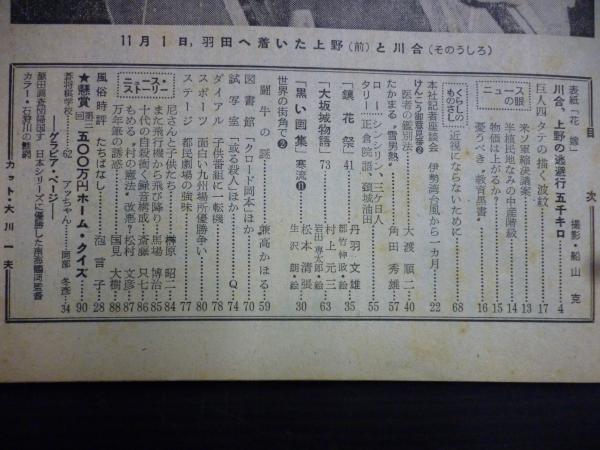 11月1日,羽田へ着いた上野(前)と川合(そのうしろ)
目 次
表紙「花嫁」 撮影・船山 克
川合、上野の逃避行五千キロ 4
巨人四タテの描く波紋 17
ニュースの眼
米ソ軍縮決議案 13
半植民地なみの中産階級 14
物価は上がるか? 15
憂うべき“教育黒書” 16
くらしのものさし
近視にならないために 68
本社記者座談会 伊勢湾台風から一カ月 22
けんこう御意見番② 医者の鑑別法 大渡 順二 40
たかまる“雪男熱” 角田 秀雄 57
ロータリー
シンジン、三ケ日人 正倉院展、頚城油田 55
「鎮花祭」41 丹羽 文雄 都竹 伸政・絵 35
「大坂城物語」73 村上 元三 岩田専太郎・絵 63
「黒い画集」寒流⑪ 松本 清張 生沢 朗・絵 30
世界の街角で② 兼高かほる 59
闘牛の謎
図書館 「クロード岡本」ほか 70
試写室 「或る殺人」ほか Q 74
ダイアル 子供番組に一転機 78
スポーツ 面白い九州場所優勝争い 80
ステージ 都民劇場の強味 77
ニュース・ストーリー
尼さんと子供たち 榊原 昭二 84
また飛行機から飛び降り 馬場 博治 85
十代の自殺働く録音構成 斎藤 只七 86
もめる“村の憲法”改悪? 松村 文彦 87
万年筆の誘惑 国見 大樹 88
風俗時評 たちばなし 泡 言子 28
★懸賞 第三回 五〇〇万円ホーム・クイズ 90
蒼将棋学校 62 アツちゃん 岡部 冬彦 34
グラビア・ページ
藤田調査団帰国す 日本シリーズに優勝した南海鶴岡監督
カラー・石狩川の鮭網
カット・大川 一夫